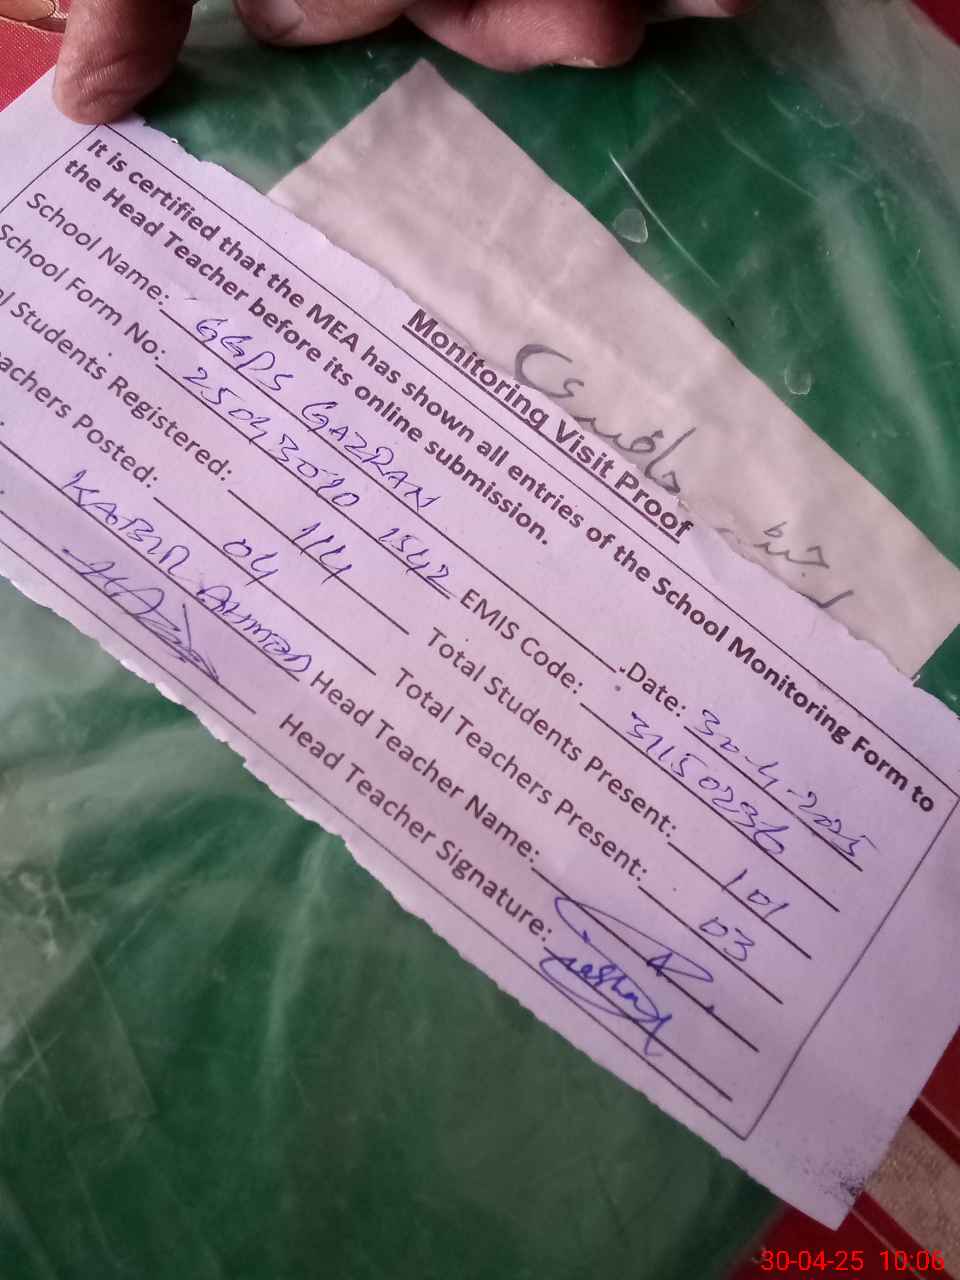 حافدی
Monitoring Visit Proof
It is certified that the MEA has shown all entries of the School Monitoring Form to
the Head Teacher before its online submission.
School Name: GGPS GAZRAN Date: 30-4-2025
School Form No: EMIS Code: 37150236
l Students Registered: 114 Total Students Present: 101
achers Posted: 04 Total Teachers Present: 03
KABIR AHMED Head Teacher Name:
Head Teacher Signature:
30-04-25 10:06